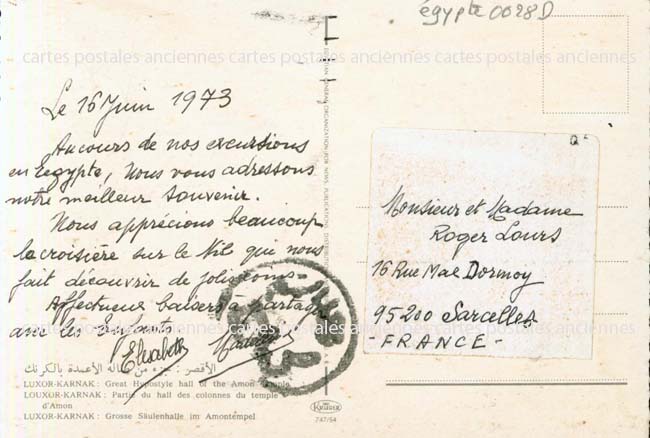 égypte 0028D
cartes postales anciennes cartes postales anciennes cartes postales anciennes
Le 16 Juin 1973
Au cours de nos excursions
en Egypte, Nous vous adressons
notre meilleur souvenir.
Nous apprécions beaucoup
la croisière sur le Nil qui nous
fait découvrir de jolis coins.
Affectueux baisers à partager
avec les enfants
Elisabeth
الأقصر : جزء من صالة الأعمدة بالكرنك
LUXOR-KARNAK : Great Hypostyle hall of the Amon temple
LOUXOR-KARNAK : Partie du hall des colonnes du temple
d'Amon
LUXOR-KARNAK : Grosse Säulenhalle im Amontempel
KRÜGER
747/54
Monsieur et Madame
Roger Lours
16 Rue Mal Dormoy
95200 Sarcelles
- FRANCE -
cartes postales anciennes cartes postales anciennes cartes postales anciennes
cartes postales anciennes cartes postales anciennes cartes postales anciennes